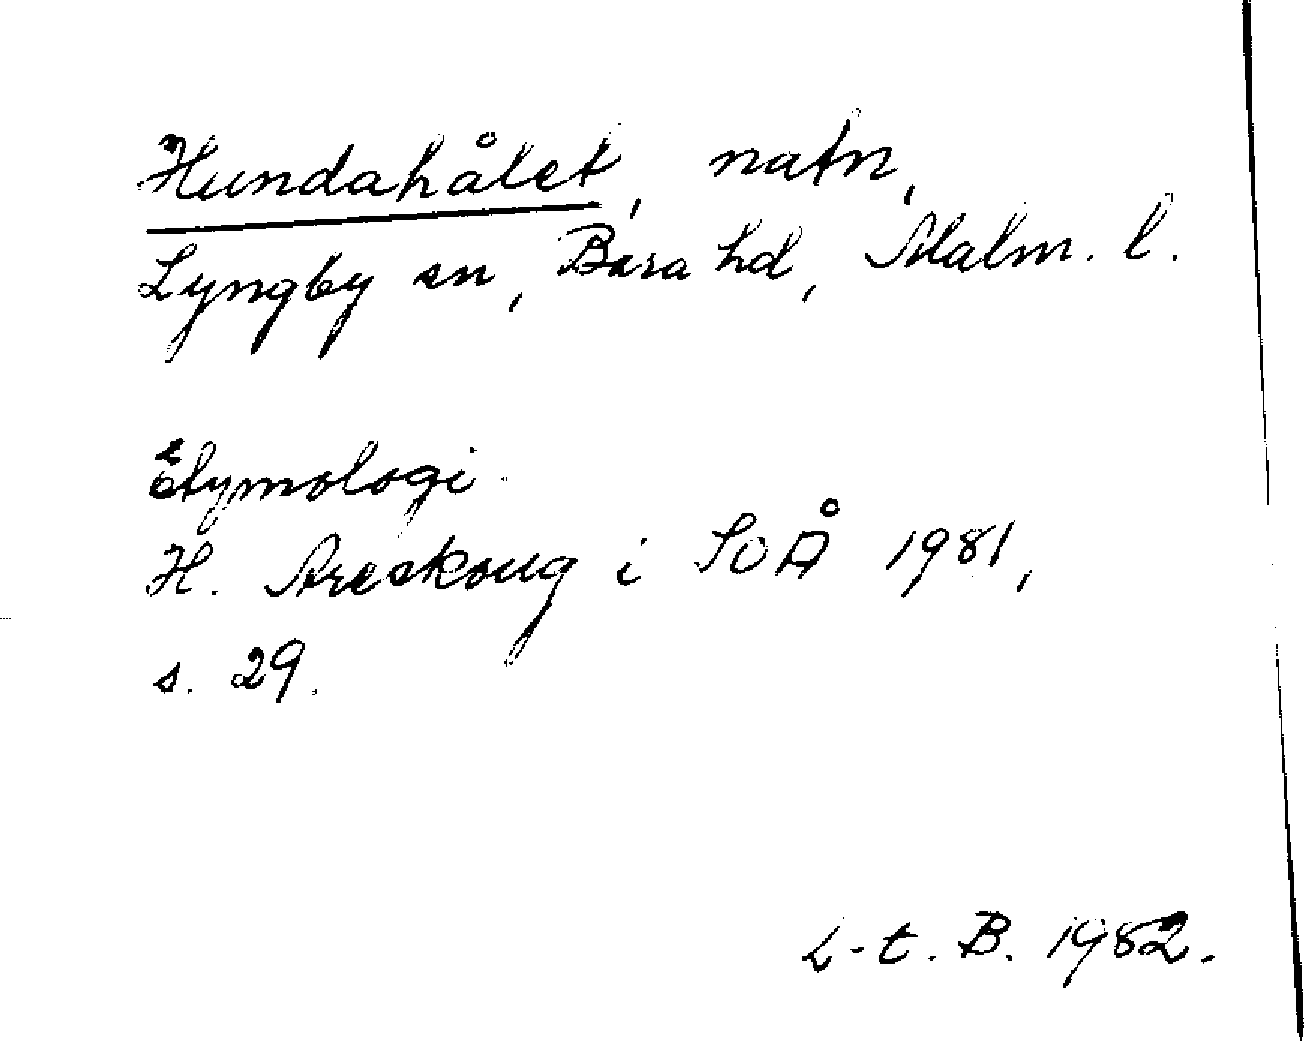 Hundahålet, natn,
Lyngby sn, Bara hd, Malm. l.
Etymologi.
H. Areskoug i SOÅ 1981,
s. 29.
L-t. B. 1982.